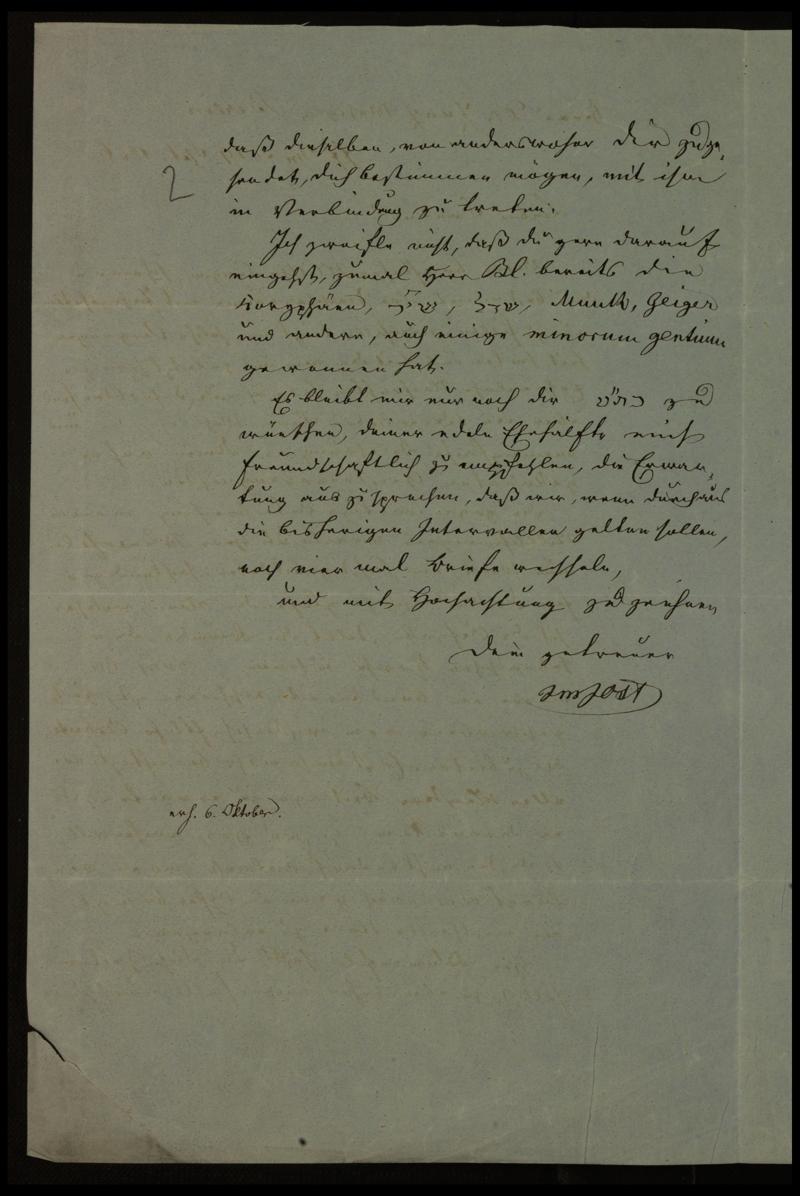 daß dieselben, von anderswoher Dir zuge-
sendet, dich bestimmen mögen, mit ihm
in Verbindung zu treten.
Ich zweifle nicht, daß du gern darauf
eingehst, zumal Herr Bl. bereits die
Koryphäen, שי״ר, שד״ל, Munk, Geiger
und andere, auch einige minorum gentium
gewonnen hat.
Es bleibt mir nur noch dir zu
wünschen, deiner edeln Ehehälfte mich
freundschaftlich zu empfehlen, die Erwar-
tung auszusprechen, daß wir, wenn durchaus
die bisherigen Intervallen gelten sollen,
noch vier mal Briefe wechseln,
und mit Hochachtung zu zeichnen
Dein getreuer
JMJost
erh. 6. Oktober.
2